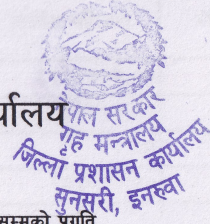 र्यालय
नेपाल सरकार
गृह मन्त्रालय
जिल्ला प्रशासन कार्यालय
सुनसरी, इनरुवा
सम्मको प्रगति